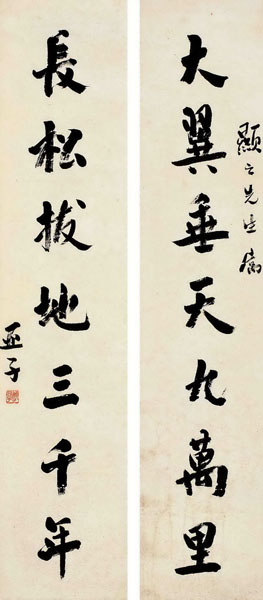 之先生
大翼垂天九萬里
長松拔地三千年
亞子